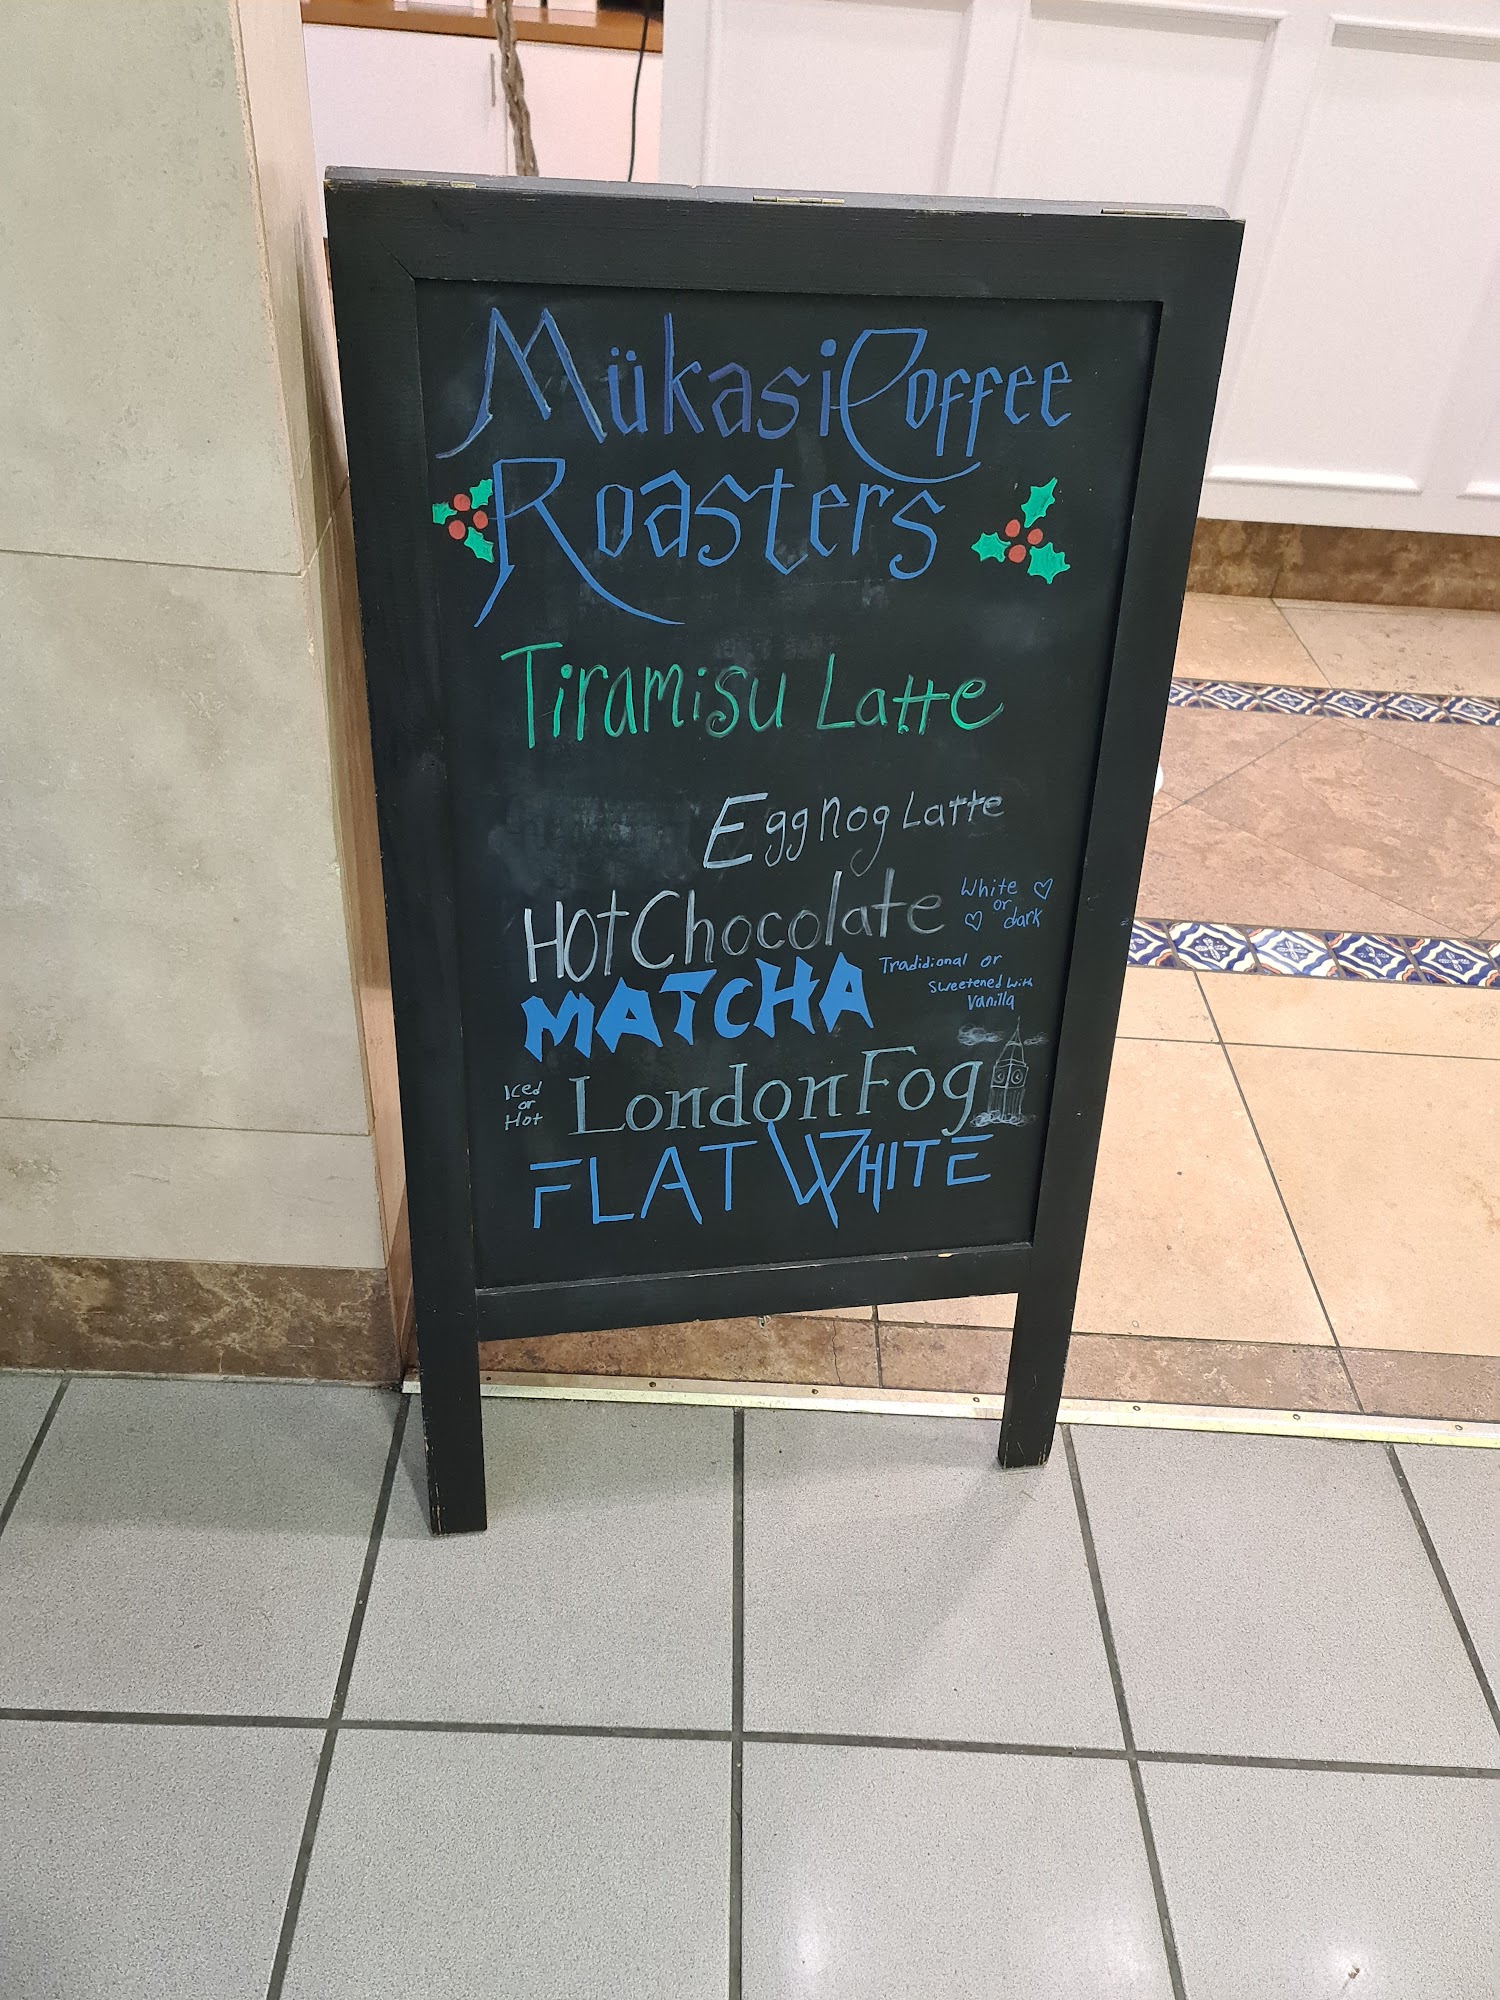 Mükasi Coffee
Roasters
Tiramisu Latte
Eggnog Latte
Hot Chocolate
White
or
dark
MATCHA
Tradidional or
Sweetened with
Vanilla
Iced
or
Hot
London Fog
FLAT WHITE